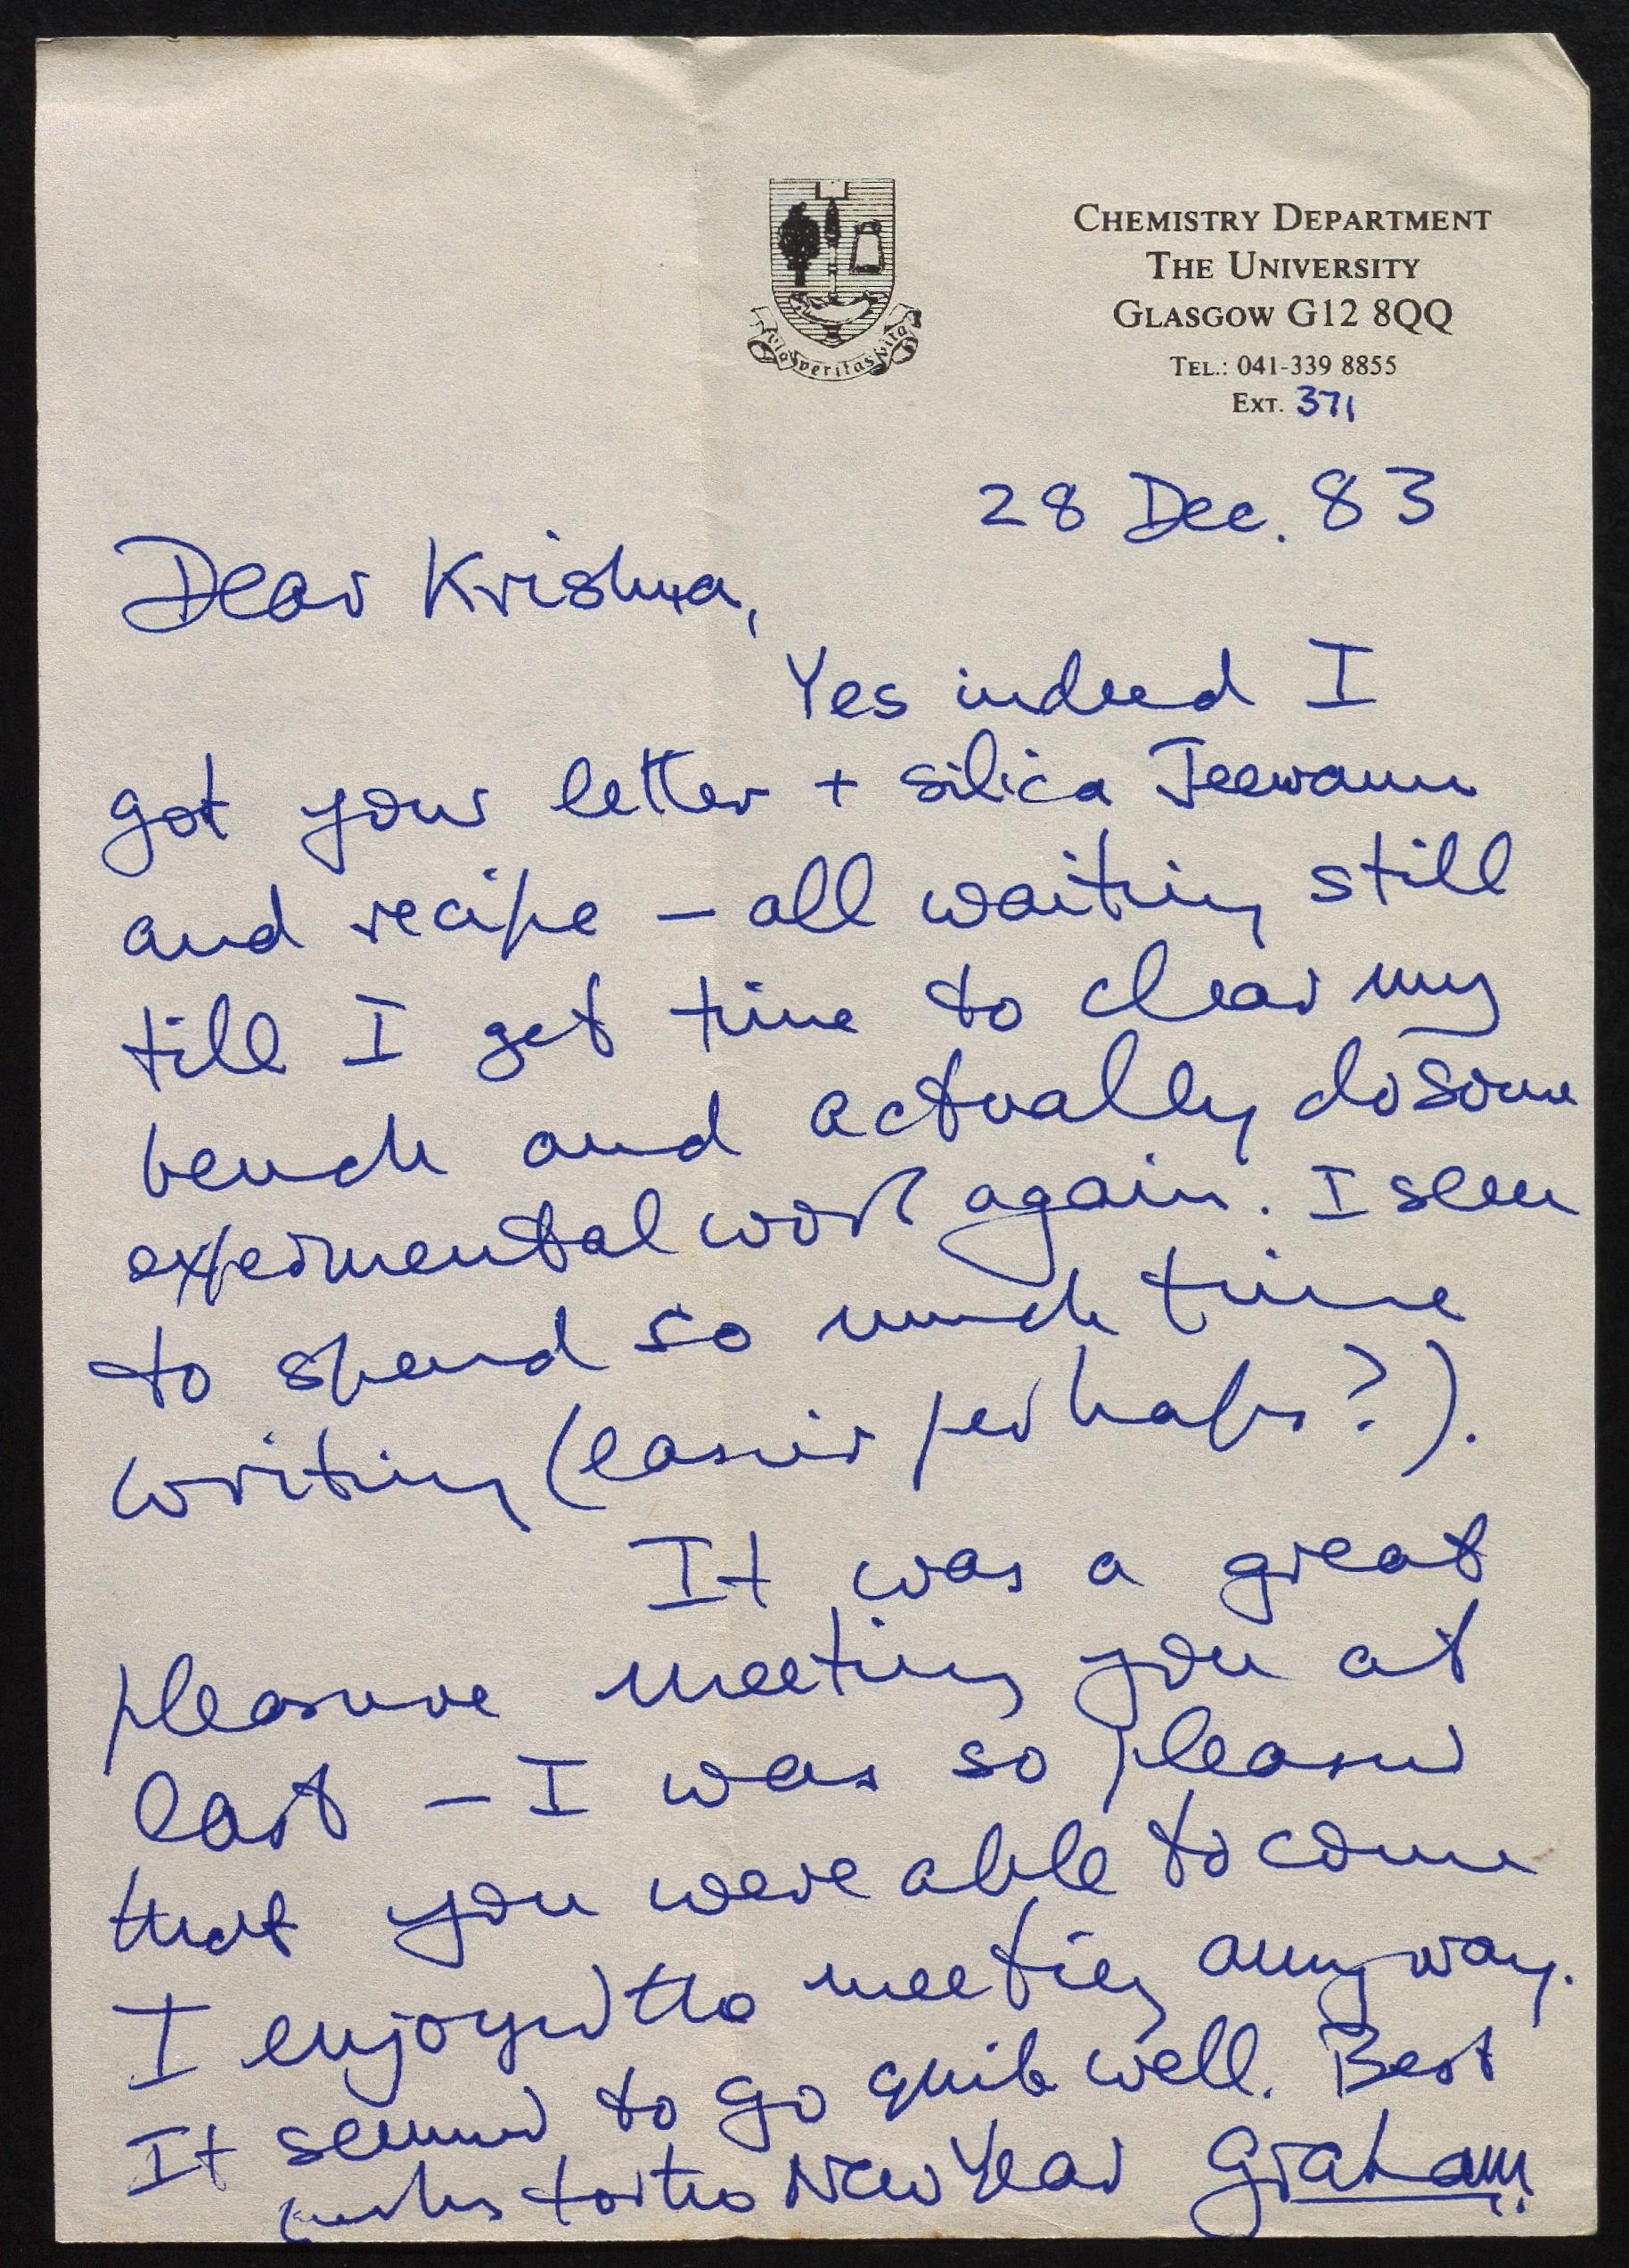 Via Veritas Vita
CHEMISTRY DEPARTMENT
THE UNIVERSITY
GLASGOW G12 8QQ
TEL.: 041-339 8855
EXT. 371
28 Dec. 83
Dear Krishna,
Yes indeed I
got your letter + silica Jeewanu
and recipe – all waiting still
till I get time to clear my
bench and actually do some
experimental work again. I seem
to spend so much time
writing (easier perhaps?).
It was a great
pleasure meeting you at
last – I was so pleased
that you were able to come
I enjoyed the meeting anyway.
It seemed to go quite well. Best
wishes for the New Year Graham